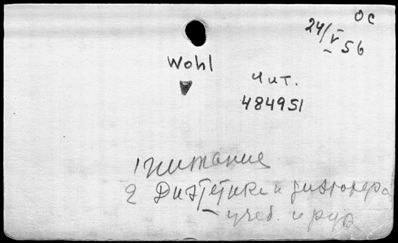 ос
24/V 56
Wohl
Чит.
484951
1 питание
2 Диэтетика и
учеб. и рук